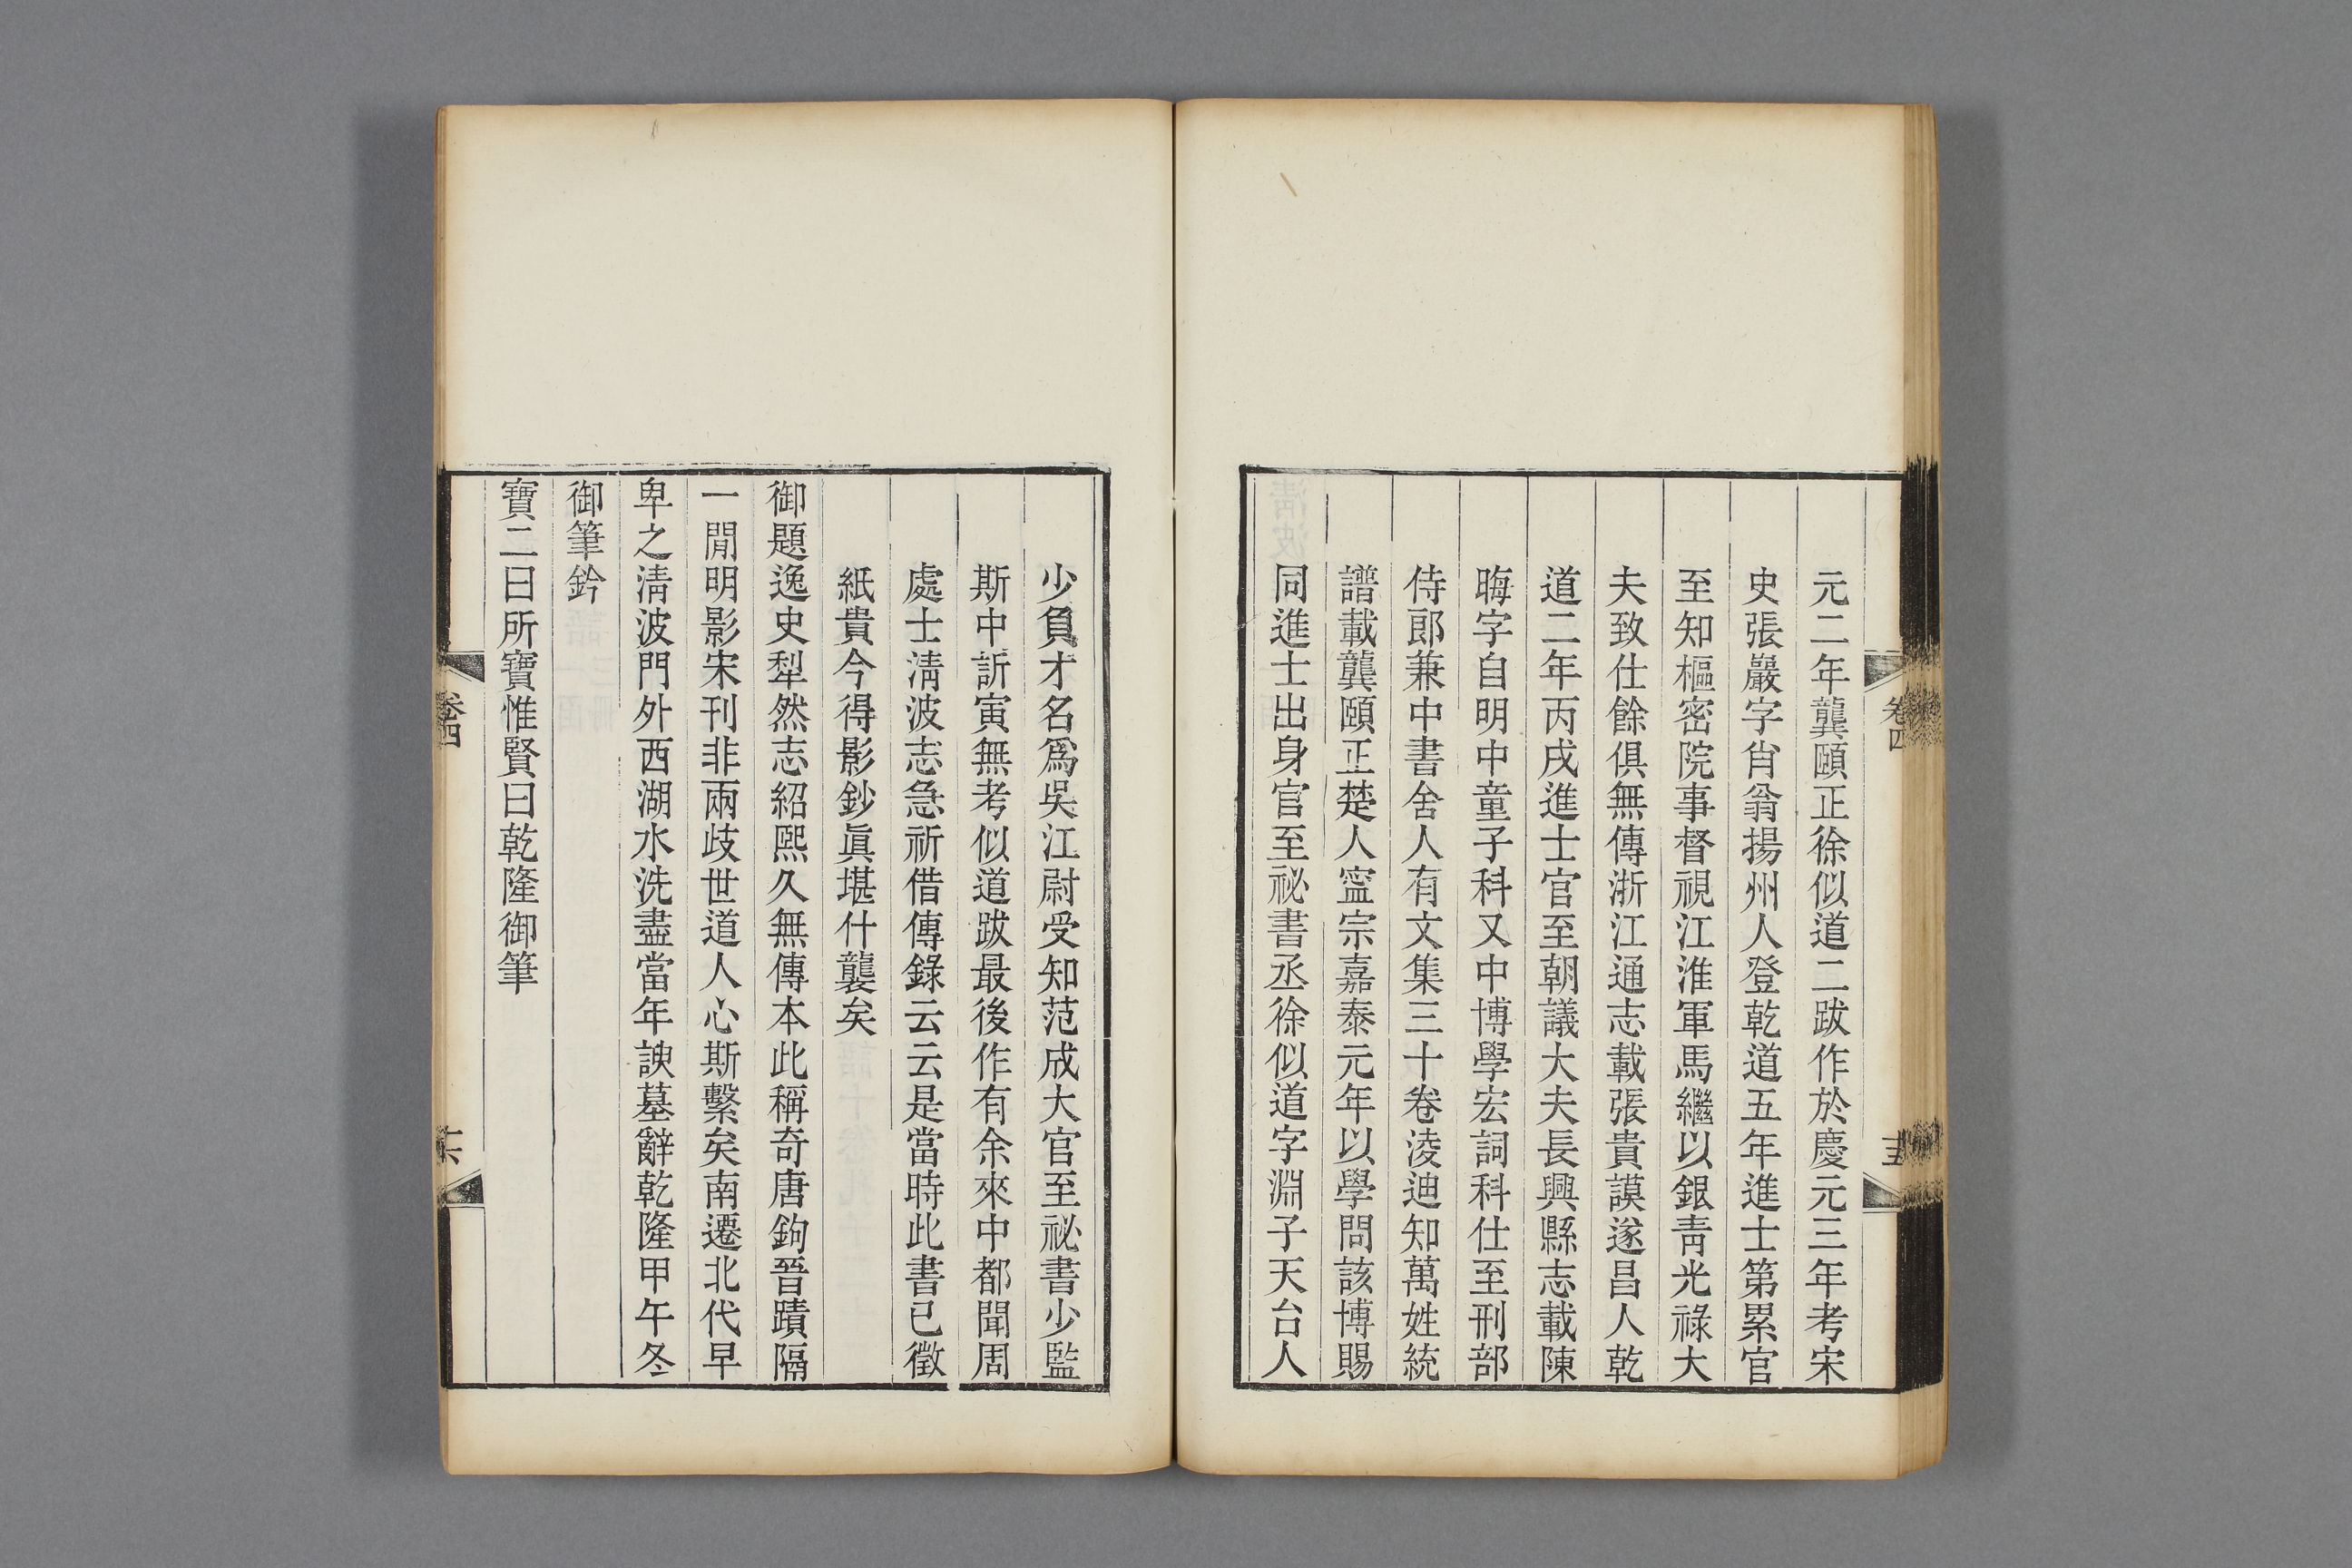 元二年龔頤正徐似道二跋作於慶元三年考宋
史張巖字肖翁揚州人登乾道五年進士第累官
至知樞密院事督視江淮軍馬繼以銀青光祿大
夫致仕餘俱無傳浙江通志載張貴謨遂昌人乾
道二年丙戌進士官至朝議大夫長興縣志載陳
晦字自明中童子科又中博學宏詞科仕至刑部
侍郎兼中書舍人有文集三十卷淩迪知萬姓統
譜載龔頤正楚人寧宗嘉泰元年以學問該博賜
同進士出身官至祕書丞徐似道字淵子天台人
少負才名爲吳江尉受知范成大官至祕書少監
斯中訢寅無考似道跋最後作有余來中都聞周
處士清波志急祈借傳錄云云是當時此書已徵
紙貴今得影鈔眞堪什襲矣
御題逸史犁然志紹熙久無傳本此稱奇唐鉤晉蹟隔
一閒明影宋刊非兩歧世道人心斯繫矣南遷北代早
卑之清波門外西湖水洗盡當年諛墓辭乾隆甲午冬
御筆鈐
寶二曰所寶惟賢曰乾隆御筆
卷四
十五
卷四
十六